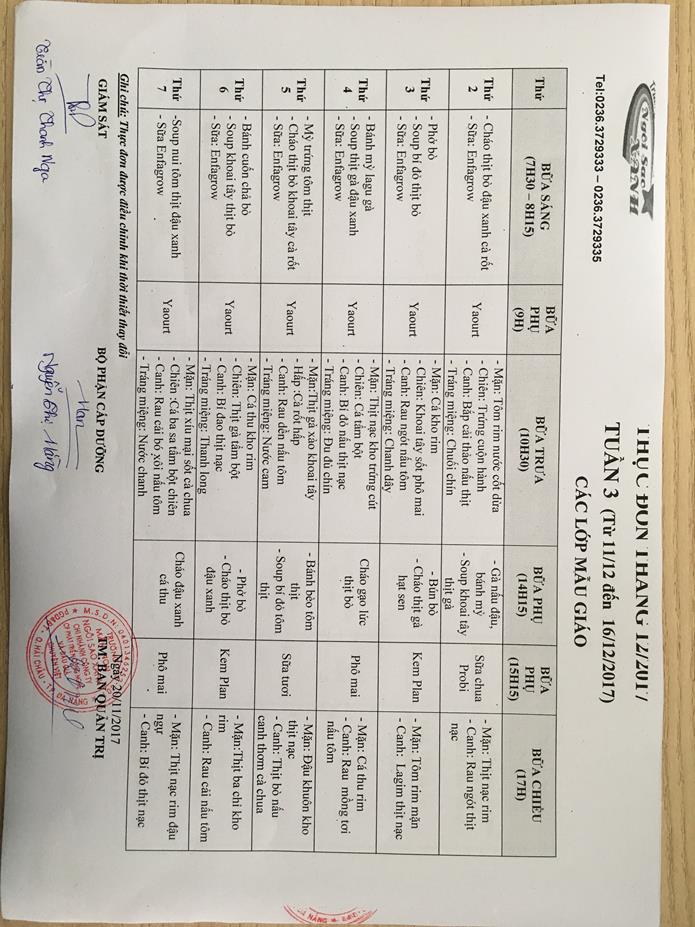 Ngôi Sao
XANH
Tel:0236.3729333 – 0236.3729335
THỰC ĐƠN THÁNG 12/2017
TUẦN 3 (Từ 11/12 đến 16/12/2017)
CÁC LỚP MẪU GIÁO
Thứ
BỮA SÁNG
(7H30 – 8H15)
BỮA
PHỤ
(9H)
BỮA TRƯA
(10H30)
BỮA PHỤ
(14H15)
BỮA
PHỤ
(15H15)
BỮA CHIỀU
(17H)
Thứ
2
- Cháo thịt bò đậu xanh cà rốt
- Sữa: Enfagrow
Yaourt
- Mặn: Tôm rim nước cốt dừa
- Chiên: Trứng cuộn hành
- Canh: Bắp cải thảo nấu thịt
- Tráng miệng: Chuối chín
- Gà nấu đậu,
bánh mỳ
- Soup khoai tây
thịt gà
Sữa chua
Probi
- Mặn: Thịt nạc rim
- Canh: Rau ngót thịt
nạc
Thứ
3
- Phở bò
- Soup bí đỏ thịt bò
- Sữa: Enfagrow
Yaourt
- Mặn: Cá kho rim
- Chiên: Khoai tây sốt phô mai
- Canh: Rau ngót nấu tôm
- Tráng miệng: Chanh dây
- Bún bò
- Cháo thịt gà
hạt sen
Kem Plan
- Mặn: Tôm rim mặn
- Canh: Lagim thịt nạc
Thứ
4
- Bánh mỳ lagu gà
- Soup thịt gà đậu xanh
- Sữa: Enfagrow
Yaourt
- Mặn: Thịt nạc kho trứng cút
- Chiên: Cá tẩm bột
- Canh: Bí đỏ nấu thịt nạc
- Tráng miệng: Đu đủ chín
Cháo gạo lức
thịt bò
Phô mai
- Mặn: Cá thu rim
- Canh: Rau mồng tơi
nấu tôm
Thứ
5
- Mỳ trứng tôm thịt
- Cháo thịt bò khoai tây cà rốt
- Sữa: Enfagrow
Yaourt
- Mặn:Thịt gà xáo khoai tây
- Hấp :Cà rốt hấp
- Canh: Rau dền nấu tôm
- Tráng miệng: Nước cam
- Bánh bèo tôm
thịt
- Soup bí đỏ tôm
thịt
Sữa tươi
- Mặn: Đậu khuôn kho
thịt nạc
- Canh: Thịt bò nấu
canh thơm cà chua
Thứ
6
- Bánh cuốn chả bò
- Soup khoai tây thịt bò
- Sữa: Enfagrow
Yaourt
Mặn: Cá thu kho rim
- Chiên: Thịt gà tẩm bột
- Canh: Bí đao thịt nạc
- Tráng miệng: Thanh long
- Phở bò
- Cháo thịt bò
đậu xanh
Kem Plan
- Mặn:Thịt ba chỉ kho
rim
- Canh: Rau cải nấu tôm
Thứ
7
-Soup nui tôm thịt đậu xanh
- Sữa Enfagrow
Yaourt
- Mặn: Thịt xíu mại sốt cà chua
- Chiên :Cá ba sa tẩm bột chiên
- Canh: Rau cải bó xôi nấu tôm
- Tráng miệng: Nước chanh
Cháo đậu xanh
cá thu
Phô mai
- Mặn: Thịt nạc rim dậu
ngự
- Canh: Bí đỏ thịt nạc
Ghi chú: Thực đơn được điều chỉnh khi thời thiết thay đổi
Ngày 20/11/2017
GIÁM SÁT
BỘ PHẬN CẤP DƯỠNG
TM: BAN QUẢN TRỊ
Trần Thị Thanh Nga
Nguyễn Thị Hồng
CHI NHÁNH CÔNG TY
Q.HẢI CHÂU - TP ĐÀ NẴNG